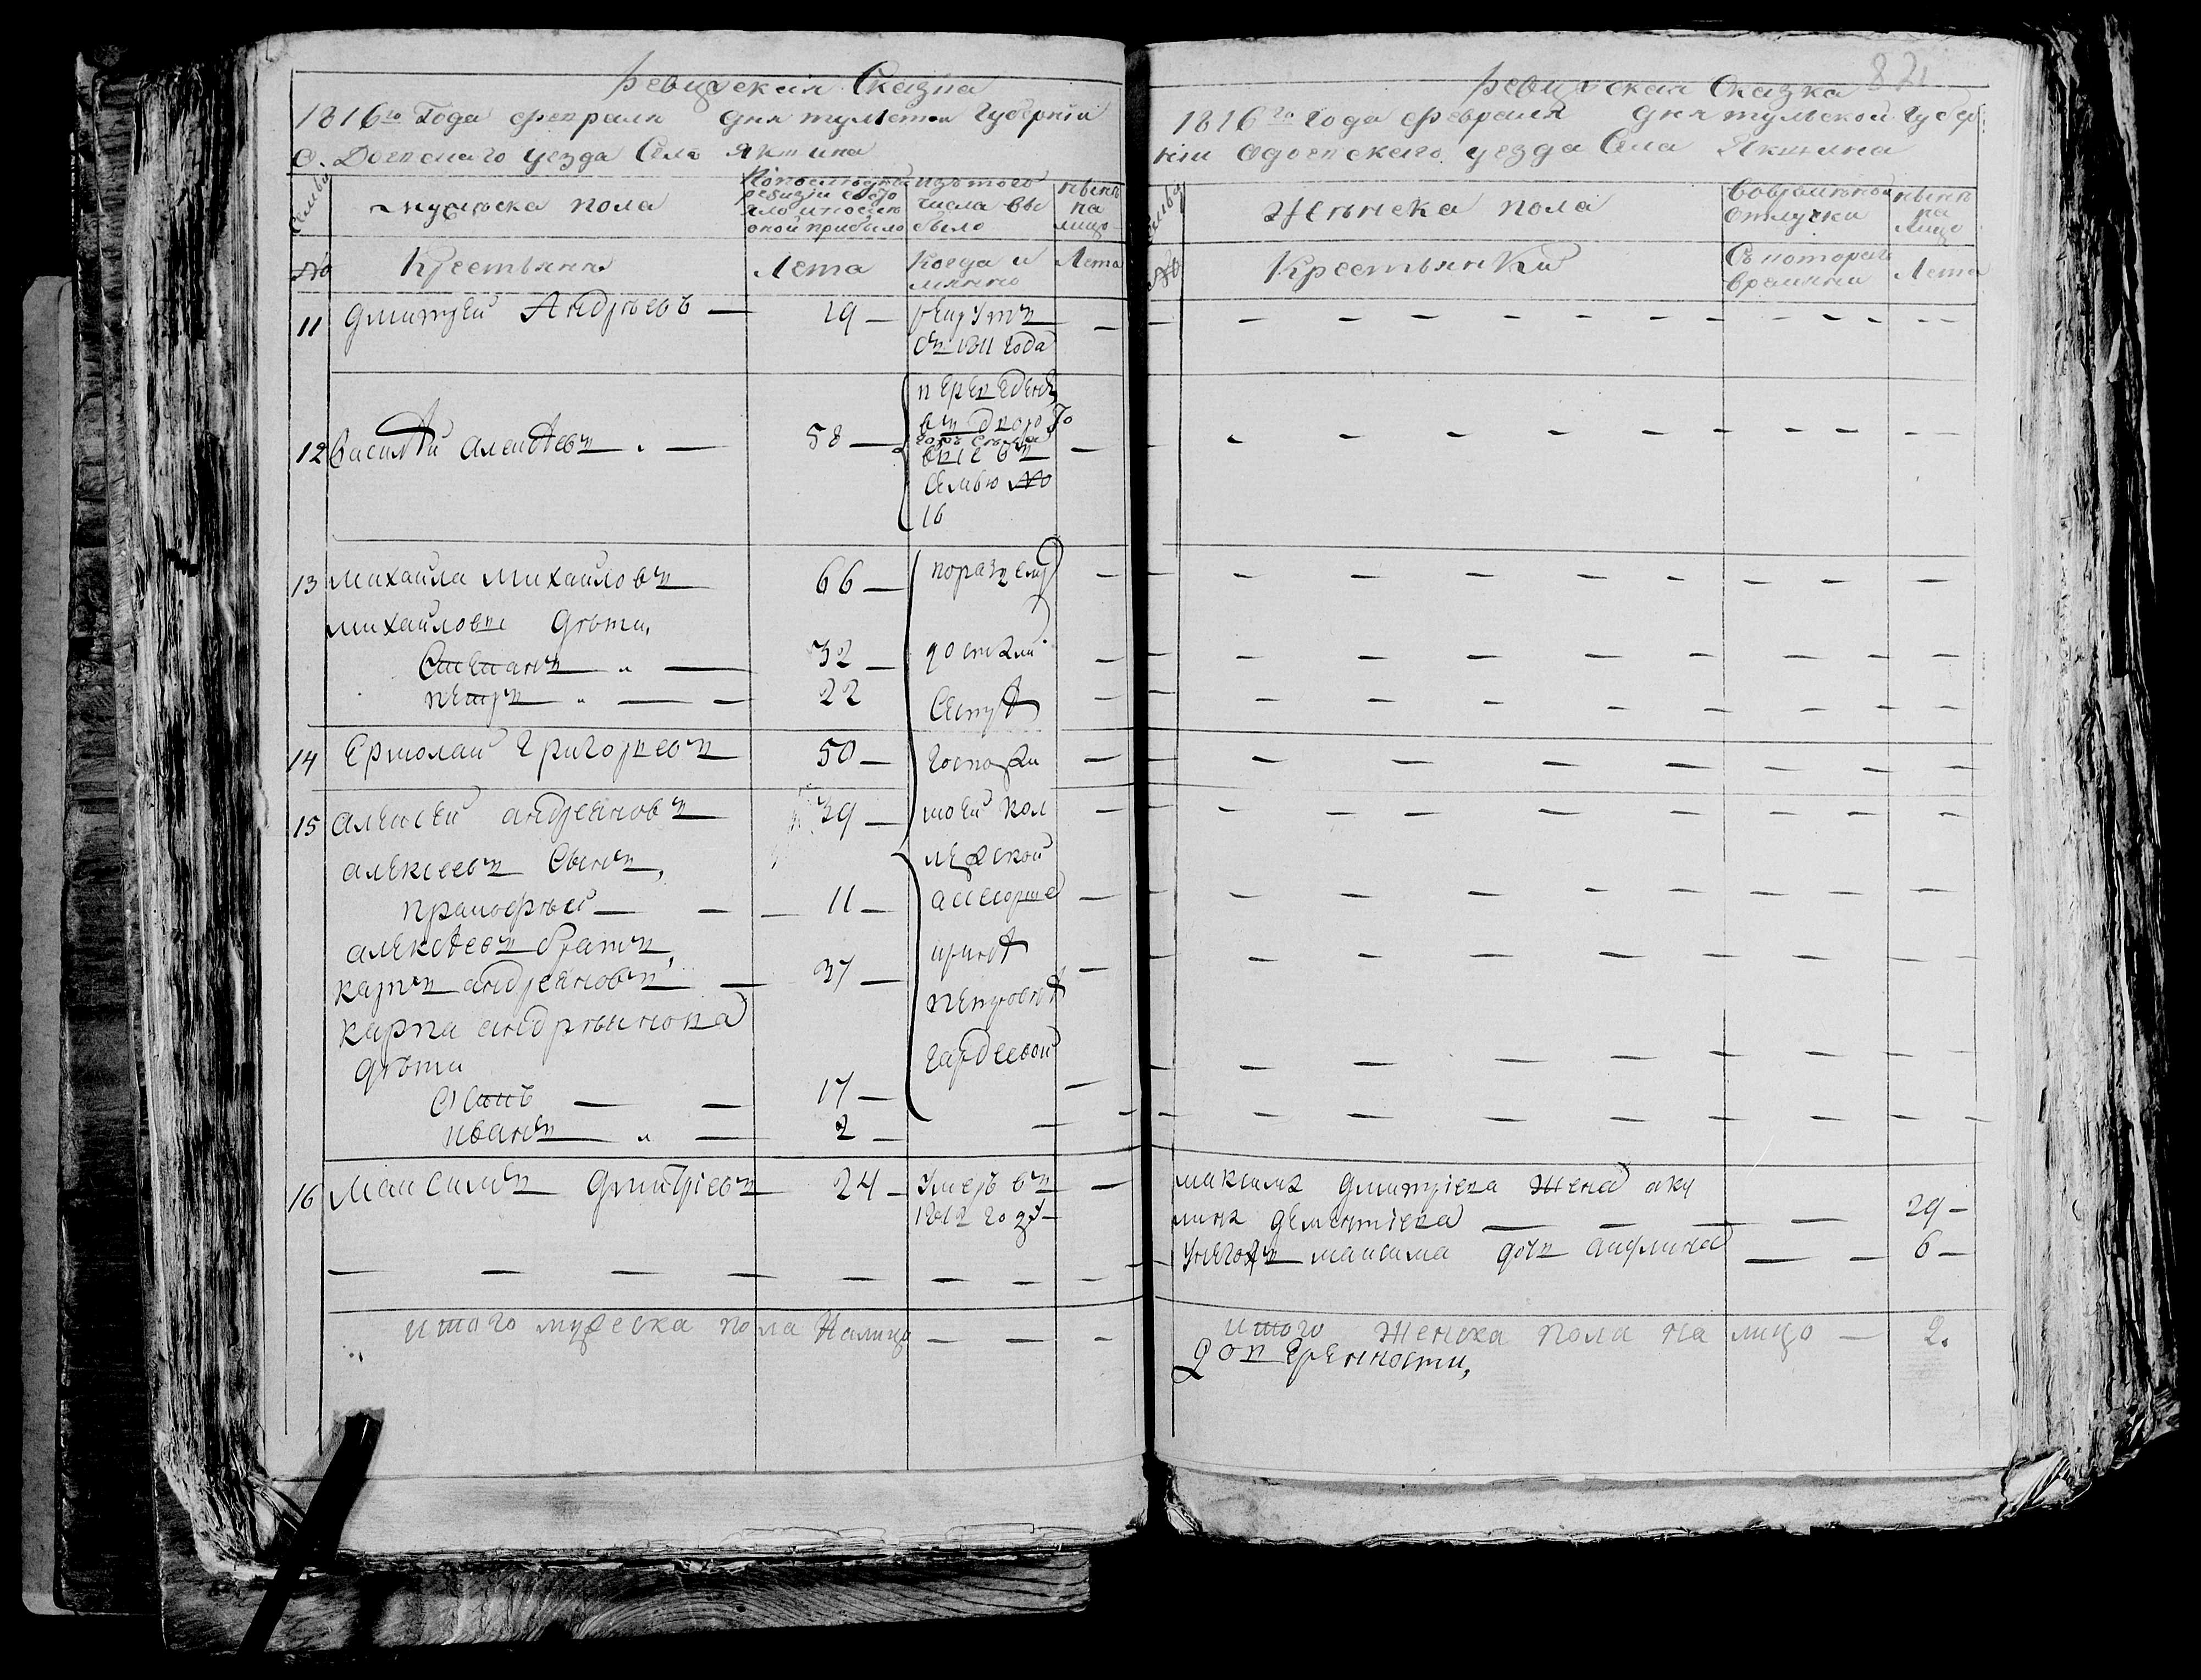 821
Ревизская Сказка
1816го Года февраля дня тульской Губернии
О. Доевскаго уезда Села Якшина
Семьи
мужеска пола
По последней ревизи состояло и после оной прибыло
изъ того числа вы было
ныне на лицо
№
Крестьяне
Лета
Когда и мянно
Лета
11 дмитрей Андреевъ — 19 — рекрутъ —
въ 1811 года
12 Василѣй Алексѣевъ — 58 — переведенъ —
въ
въ
Семью №
16
13 михайла михайловъ 66 — поразделу —
михайловы дѣти,
Степанъ — 32 — —
петръ — 22 Сестрѣ —
14 Ермолай григорьевъ 50 — госпожи —
15 алексей андреяновъ 39 — моей кол —
алексеевъ Сынъ, лежской
прапофѣей — 11 — асесорше —
алексѣевъ братъ, иринѣ
карпъ андреяновъ — 37 — петровнѣ —
карпа андрѣянова
дѣти гардеевой
Осипъ — 17 — —
иванъ — 2 — —
16 Максимъ дмитріевъ 24 — Умеръ въ —
1812 году —
итого мужеска пола Налицо — — —
Ревизская Сказка
1816го Года февраля дня тульской Губер
нии Одоевскаго уезда Села Якшина
Семьи
Женска пола
Вовремянной отлучки
ныне на лицо
№
Крестьянки
Съ котораго времяни
Лета
максима дмитріева жена аку
лина дементіева — — — — 29 —
У негожъ максима дочь акулина — — 6 —
итого Женска пола на лицо — 2.
доверенности,